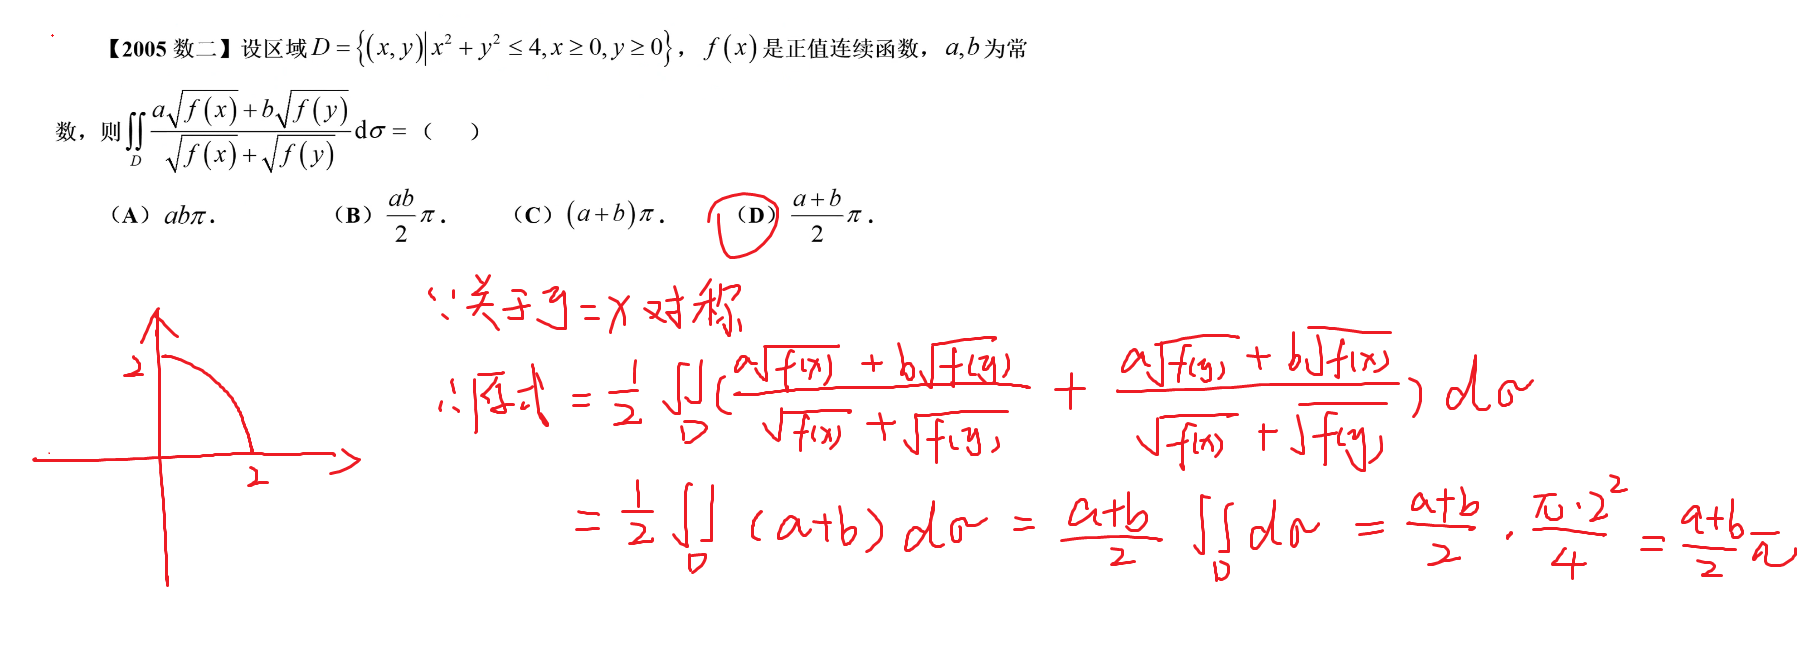 【2005 数二】设区域 D = {(x, y)| x² + y² ≤ 4, x ≥ 0, y ≥ 0}，f(x) 是正值连续函数，a,b 为常
数，则 ∬_D (a√f(x) + b√f(y)) / (√f(x) + √f(y)) dσ = （ ）
（A）abπ． （B）ab/2 π． （C）(a+b)π． （D）(a+b)/2 π．
∵关于y=x对称
∴原式 = 1/2 ∬_D ( (a√f(x) + b√f(y)) / (√f(x) + √f(y)) + (a√f(y) + b√f(x)) / (√f(x) + √f(y)) ) dσ
= 1/2 ∬_D (a+b) dσ = (a+b)/2 ∬_D dσ = (a+b)/2 · (π·2²)/4 = (a+b)/2 π
2
2